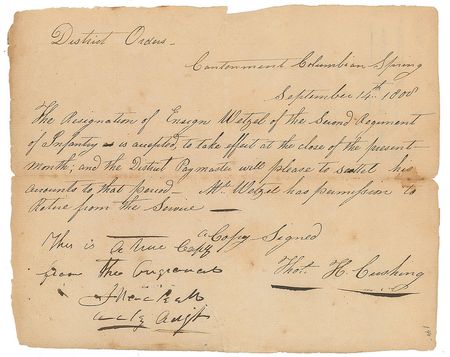 District Orders
Cantonment Columbian Spring
September 14th 1808
The Resignation of Ensign Wetzel of the Second Regiment
of Infantry is accepted, to take effect at the close of the present
month; and the District Paymaster will please to settel his
accounts to that period. Mr. Wetzel has permission to
Retire from the Service —
a Copy Signed
This is a true Copy
from the
Thos. H. Cushing
Adjt